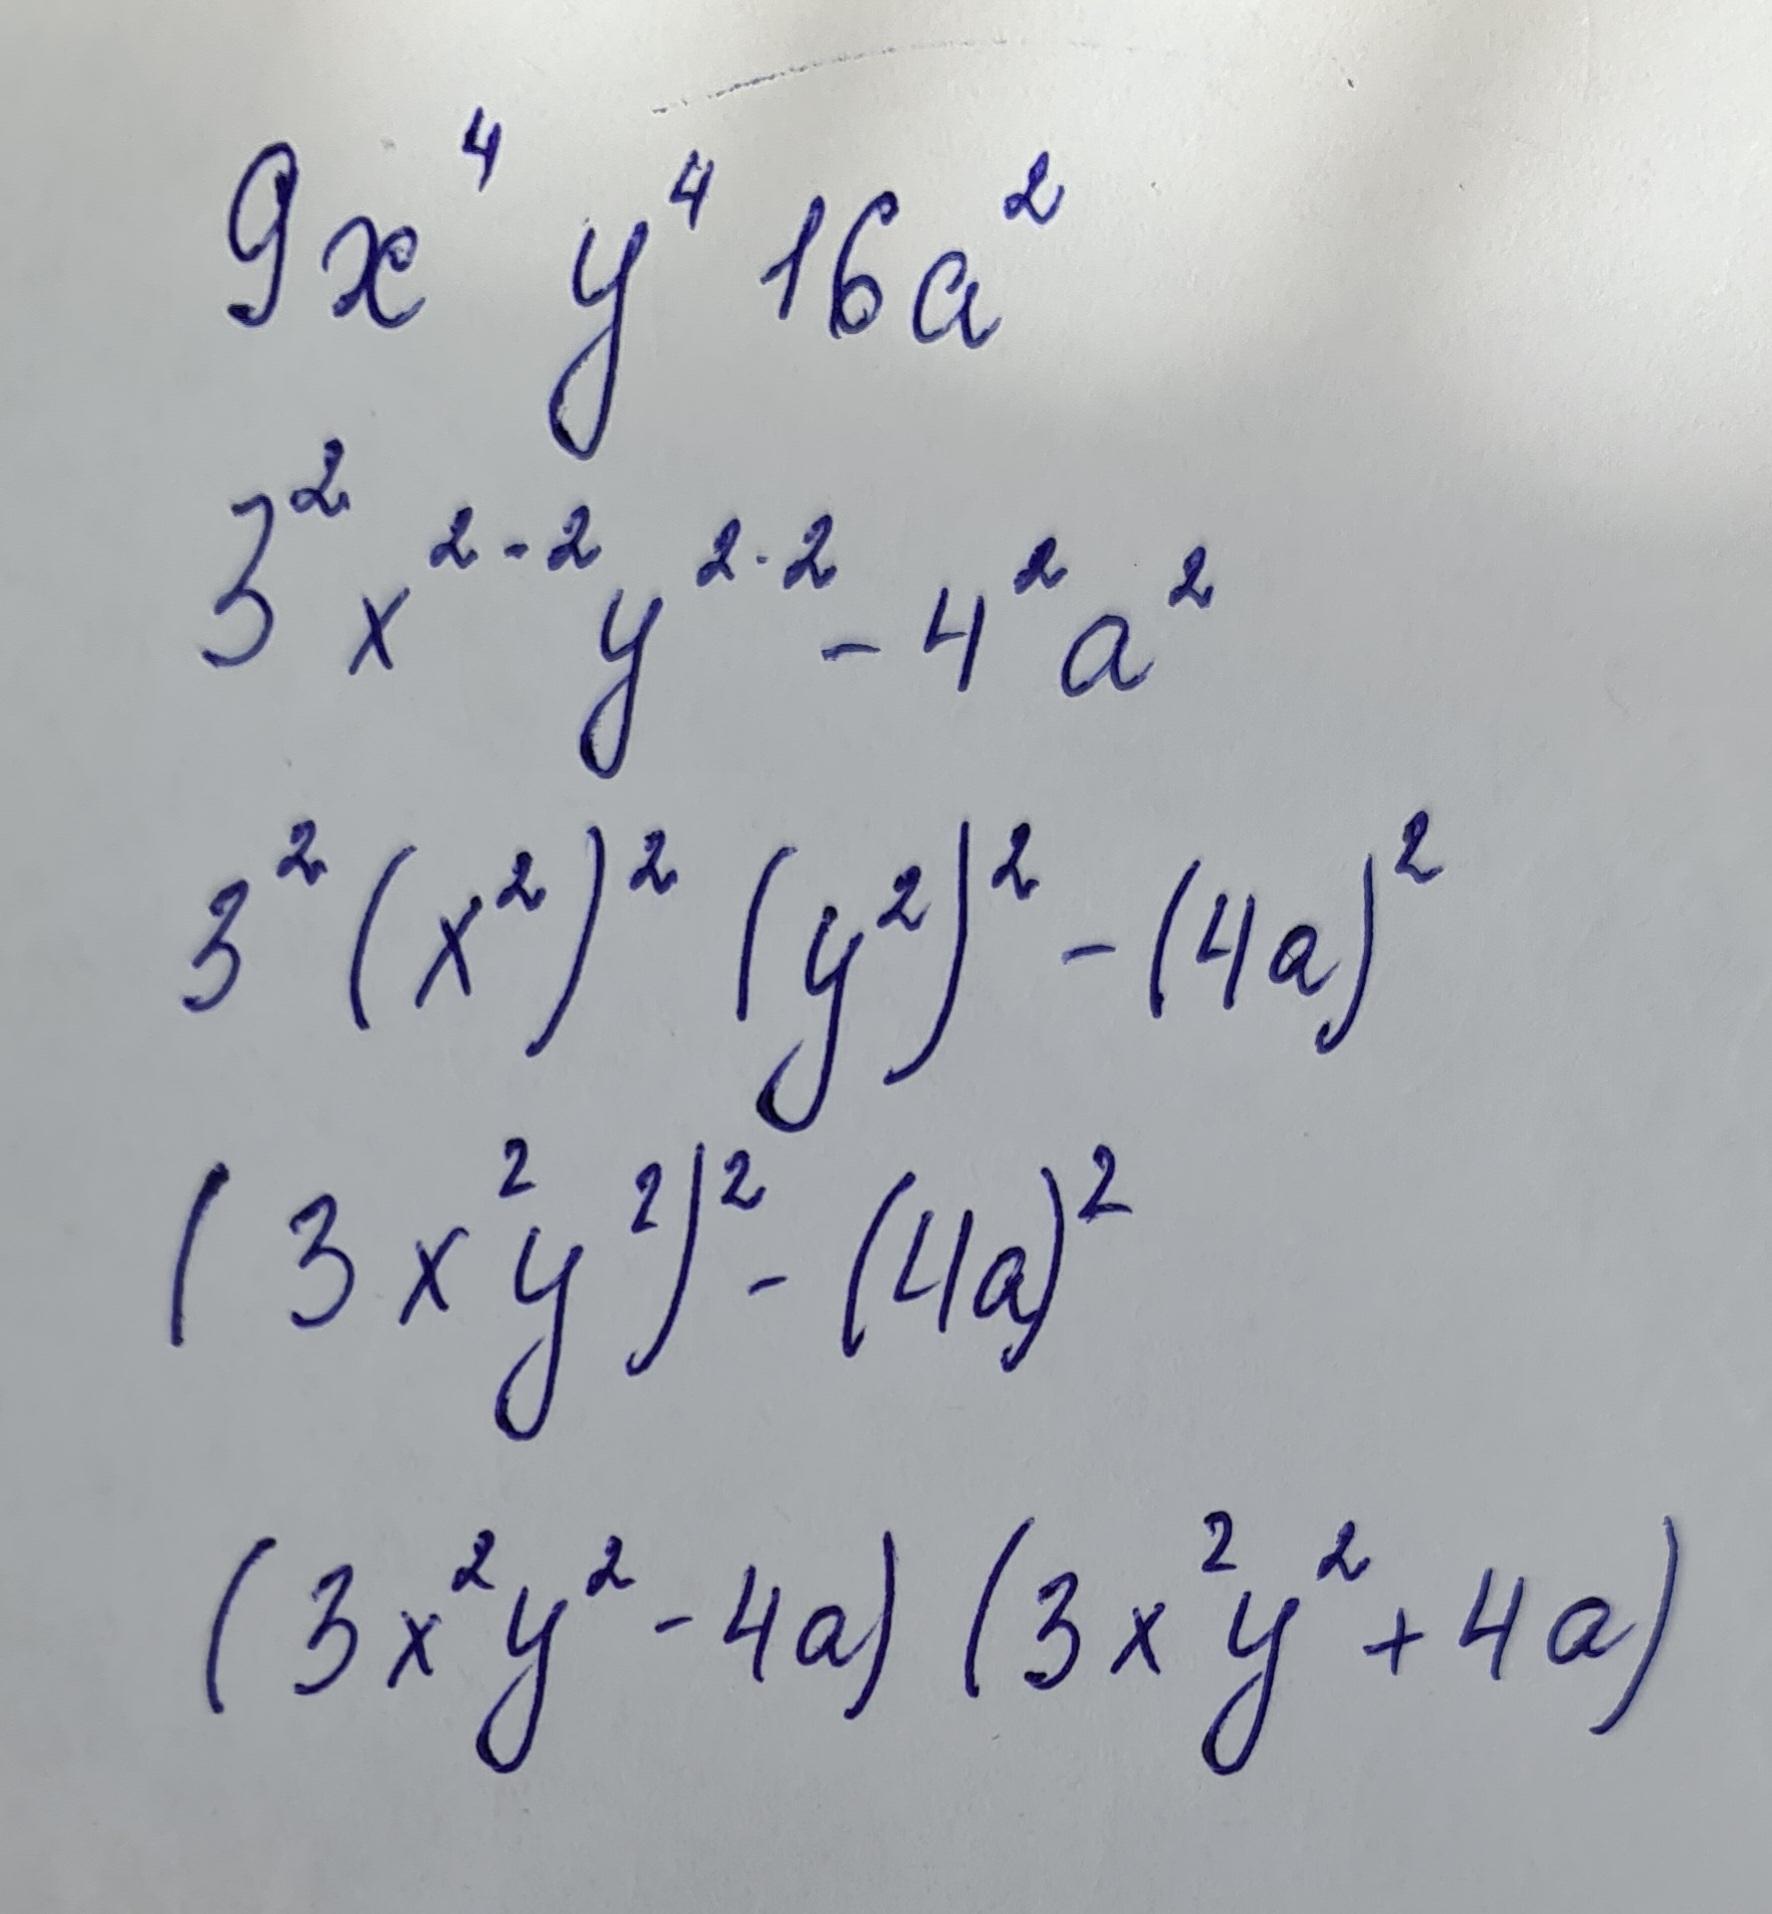 9x⁴ y⁴ 16a²
3² x²·² y²·² - 4² a²
3² (x²)² (y²)² - (4a)²
(3x² y²)² - (4a)²
(3x² y² - 4a) (3x² y² + 4a)